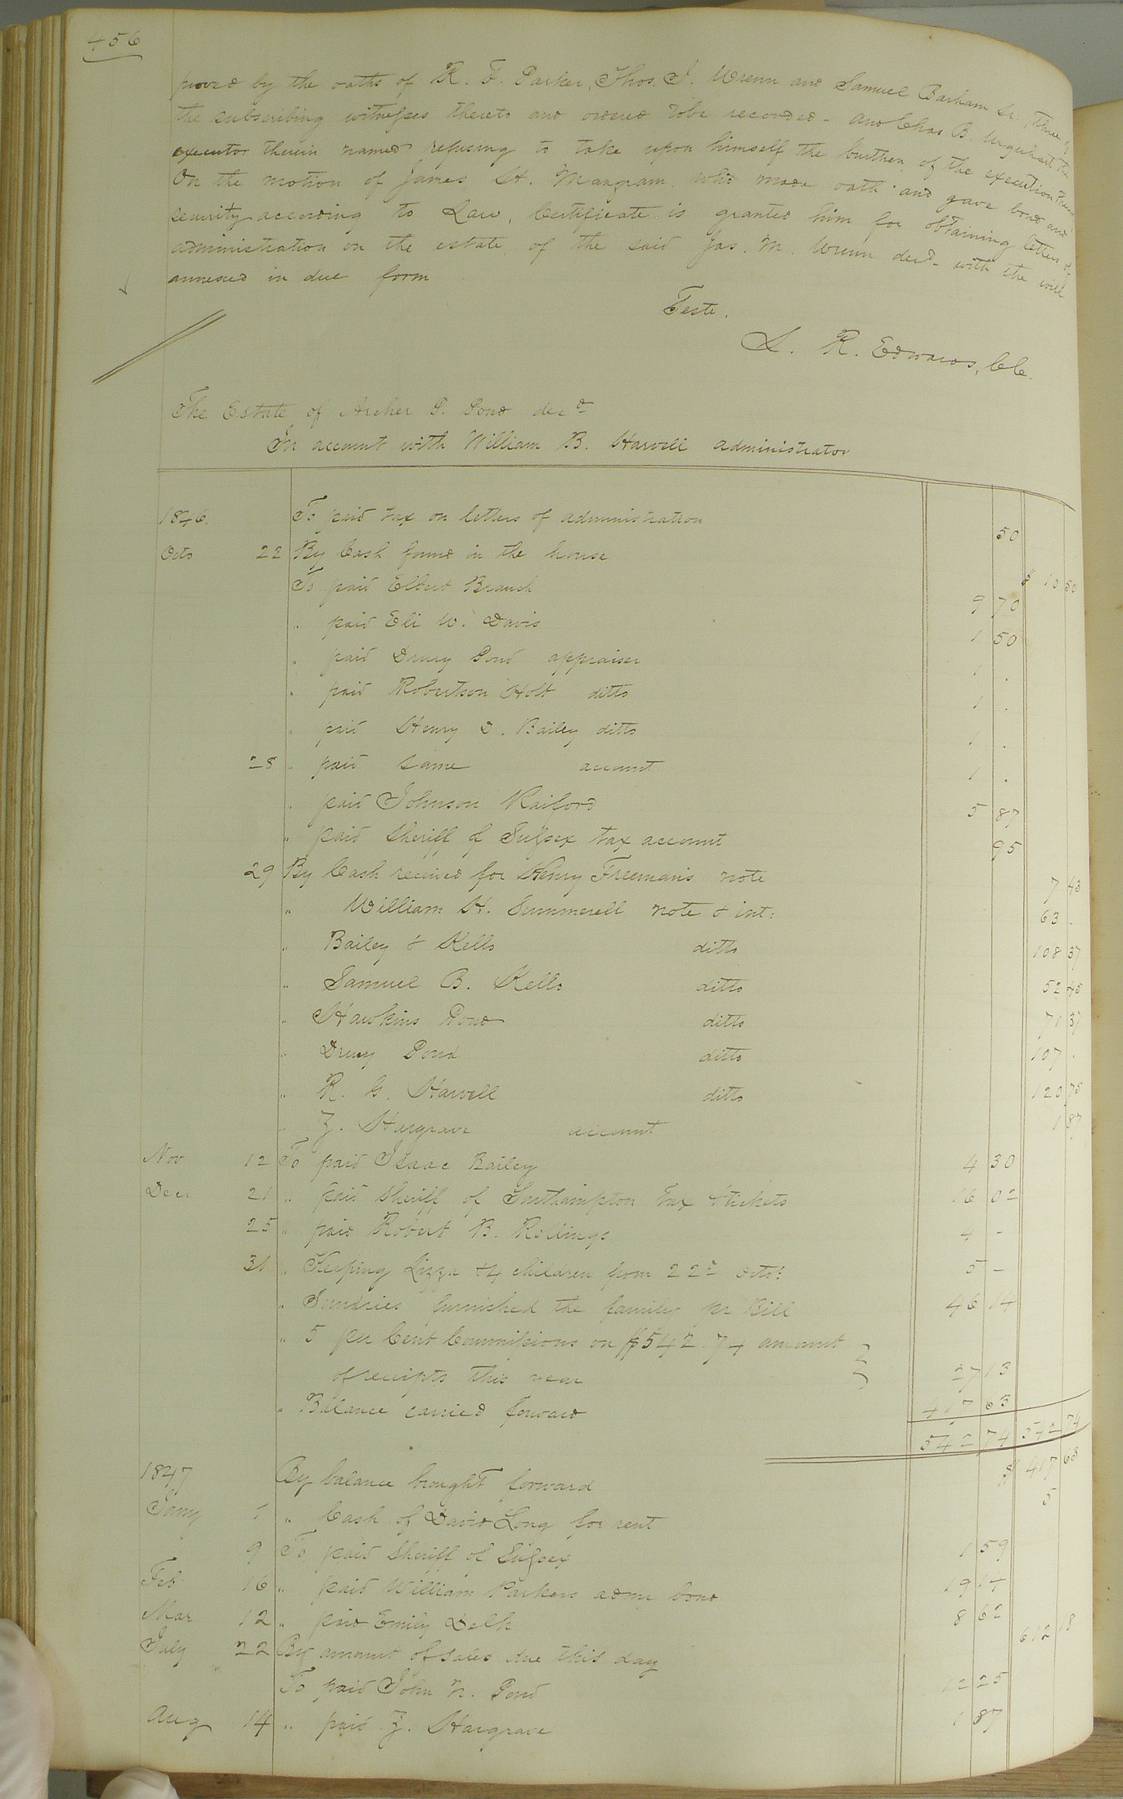 456
proved by the oaths of R. F. Parker, Thos. J. Wrenn and Samuel Barham Sr. three of
the subscribing witnesses thereto and ordered to be recorded - and Chas B Urquhart the
executor therein named refusing to take upon himself the burthen of the execution thereof
On the motion of James H. Mangram who made oath and gave bond and
security according to Law, Certificate is granted him for obtaining letters of
administration on the estate of the said Jas. M. Wrenn decd. with the will
annexed in due form
Teste.
L. R. Edwards, CC.
The Estate of Archer P. Pond decd
In account with William B. Harvell administrator
1846. To paid tax on letters of administration 50
Octo 22 By Cash found in the house $ 10 50
To paid Elbert Branch 9 70
" paid Eli W. Davis 1 50
" paid Drury Pond appraiser 1 .
" paid Robertson Holt ditto 1 .
" paid Henry D. Bailey ditto 1 .
28 " paid same account 1 .
" paid Johnson Raiford 5 87
" paid Sheriff of Sussex tax account 95
29 By Cash received for Henry Freeman's note 7 43
" William H. Summerell note & int: 63 -
" Bailey & Kello ditto 108 37
" Samuel B. Kello ditto 52 45
" Hawkins Pond ditto 71 37
" Drury Pond ditto 107 .
" R. G. Harvell ditto 120 75
" Z. Hargrave account 1 87
Nov 12 To paid Isaac Bailey 4 30
Dec. 21 " paid Sheriff of Southampton tax tickets 16 02
25 " paid Robert B. Rollings 4 -
31 " Keeping Lizza & 4 children from 22d Octo: 5 -
" Sundries furnished the family pr Bill 46 14
" 5 per Cent Commissions on $542.74 amount
of receipts this year 27 13
" Balance carried forward 417 63
542 74 542 74
1847 By balance brought forward $ 417 63
Jany 1 " Cash of David Long for rent 5
9 To paid Sheriff of Sussex 1 59
Feb 16 " paid William Parkers admr bond 19 14
Mar 12 " paid Emily Delk 8 62
July 22 By amount of sales due this day 612 18
To paid John N. Pond 12 25
Aug 14 " paid Z. Hargrave 1 87